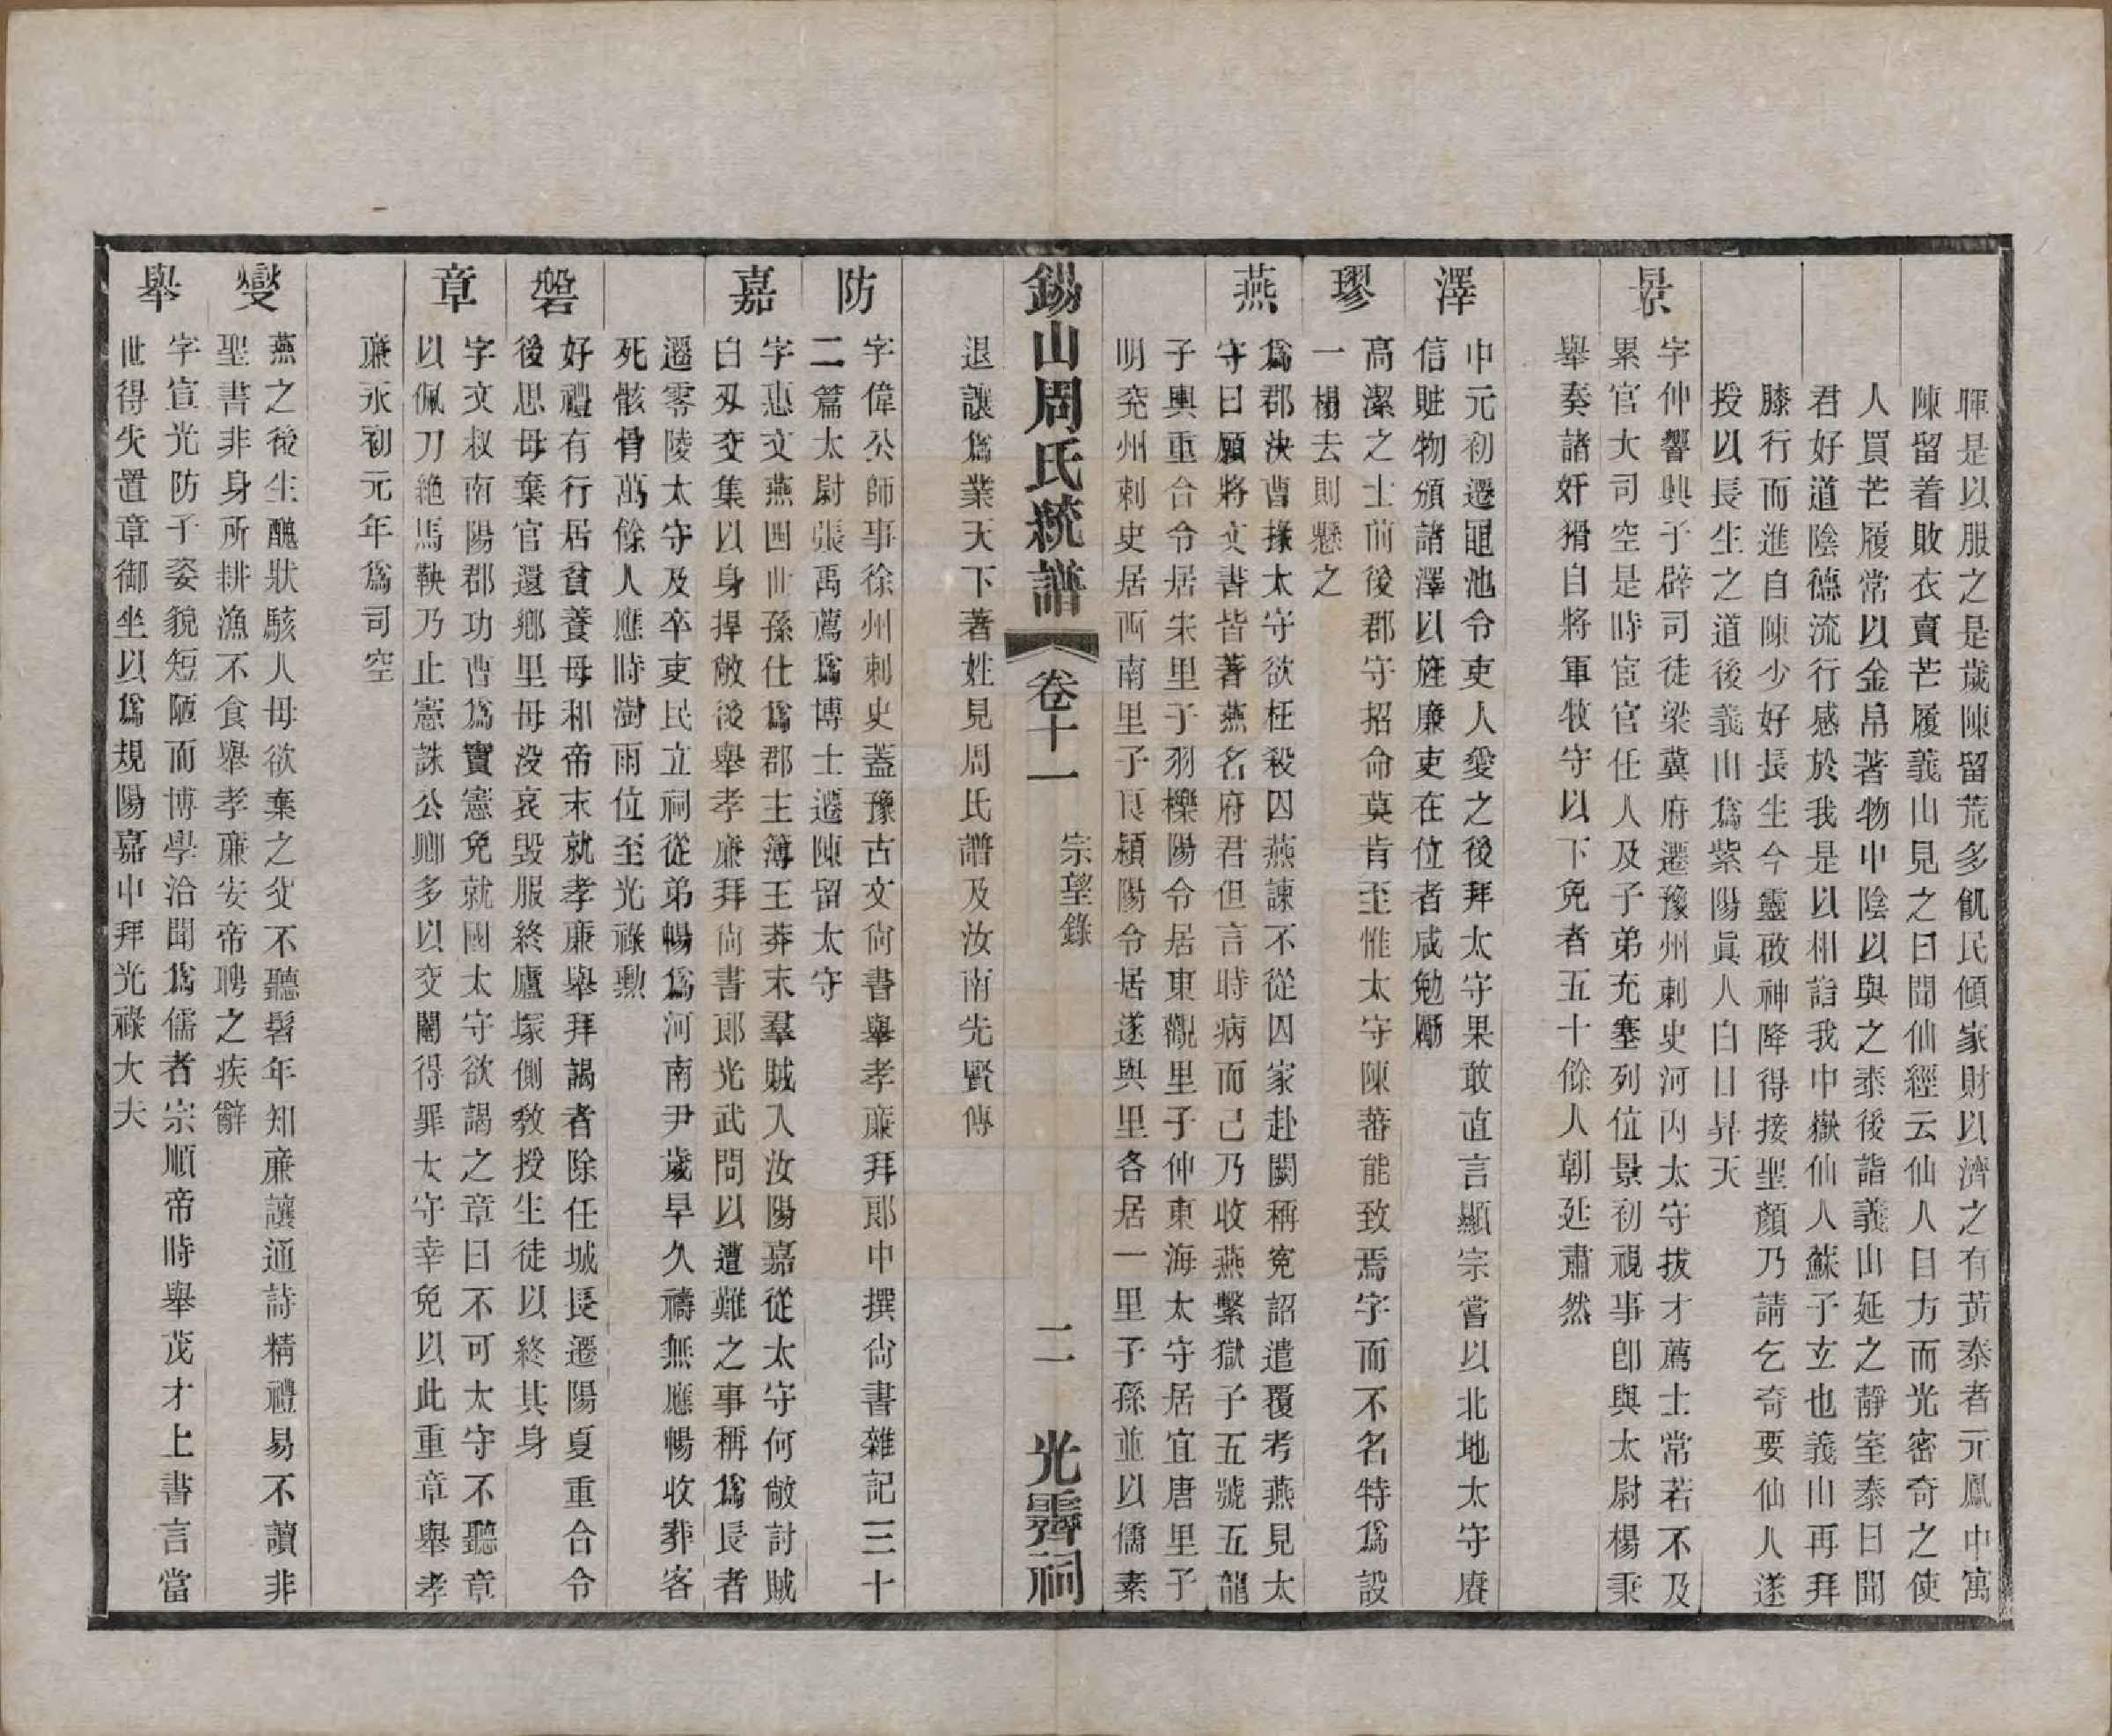 暉是以服之是歲陳留荒多飢民傾家財以濟之有黃泰者元鳳中寓
陳留着敗衣賣芒履義山見之曰聞仙經云仙人目方而光密奇之使
人買芒履常以金帛著物中陰以與之泰後詣義山延之靜室泰曰聞
君好道陰德流行感於我是以相詣我中嶽仙人蘇子玄也義山再拜
膝行而進自陳少好長生今靈啟神降得接聖顏乃請乞奇要仙人遂
授以長生之道後義山爲紫陽眞人白日昇天
景
字仲響興子辟司徒梁冀府遷豫州刺史河內太守拔才薦士常若不及
累官大司空是時宦官任人及子弟充塞列位景初視事卽與太尉楊秉
舉奏諸奸猾自將軍牧守以下免者五十餘人朝廷肅然
澤
中元初遷黽池令吏人愛之後拜太守果敢直言顯宗嘗以北地太守廖
信贓物頒諸澤以旌廉吏在位者咸勉勵
璆
高潔之士前後郡守招命莫肯至惟太守陳蕃能致焉字而不名特爲設
一榻去則懸之
燕
爲郡決曹掾太守欲枉殺囚燕諫不從囚家赴闕稱寃詔遣覆考燕見太
守曰願將文書皆著燕名府君但言時病而已乃收燕繫獄子五號五龍
子輿重合令居朱里子羽櫟陽令居東觀里子仲東海太守居宜唐里子
明兖州刺史居西南里子良潁陽令居遂與里各居一里子孫並以儒素
錫山周氏統譜
卷十一
宗望錄
二
光霽祠
退讓爲業天下著姓見周氏譜及汝南先賢傳
防
字偉公師事徐州刺史蓋豫古文尙書舉孝廉拜郞中撰尙書雜記三十
二篇太尉張禹薦爲博士遷陳留太守
嘉
字惠文燕四世孫仕爲郡主簿王莽末羣賊入汝陽嘉從太守何敞討賊
白刃交集以身捍敵後舉孝廉拜尙書郞光武問以遭難之事稱爲長者
遷零陵太守及卒吏民立祠從弟暢爲河南尹歲旱久禱無應暢收葬客
死骸骨萬餘人應時澍雨位至光祿勲
磐
好禮有行居貧養母和帝末就孝廉舉拜謁者除任城長遷陽夏重合令
後思母棄官還鄉里母没哀毁服終廬塚側敎授生徒以終其身
章
字文叔南陽郡功曹爲竇憲免就國太守欲謁之章曰不可太守不聽章
以佩刀絶馬鞅乃止憲誅公卿多以交闗得罪太守幸免以此重章舉孝
廉永初元年爲司空
燮
燕之後生醜狀駭人母欲棄之父不聽髫年知廉讓通詩精禮易不讀非
聖書非身所耕漁不食舉孝廉安帝聘之疾辭
舉
字宣光防子姿貌短陋而博學洽聞爲儒者宗順帝時舉茂才上書言當
世得失置章御坐以爲規陽嘉中拜光祿大夫